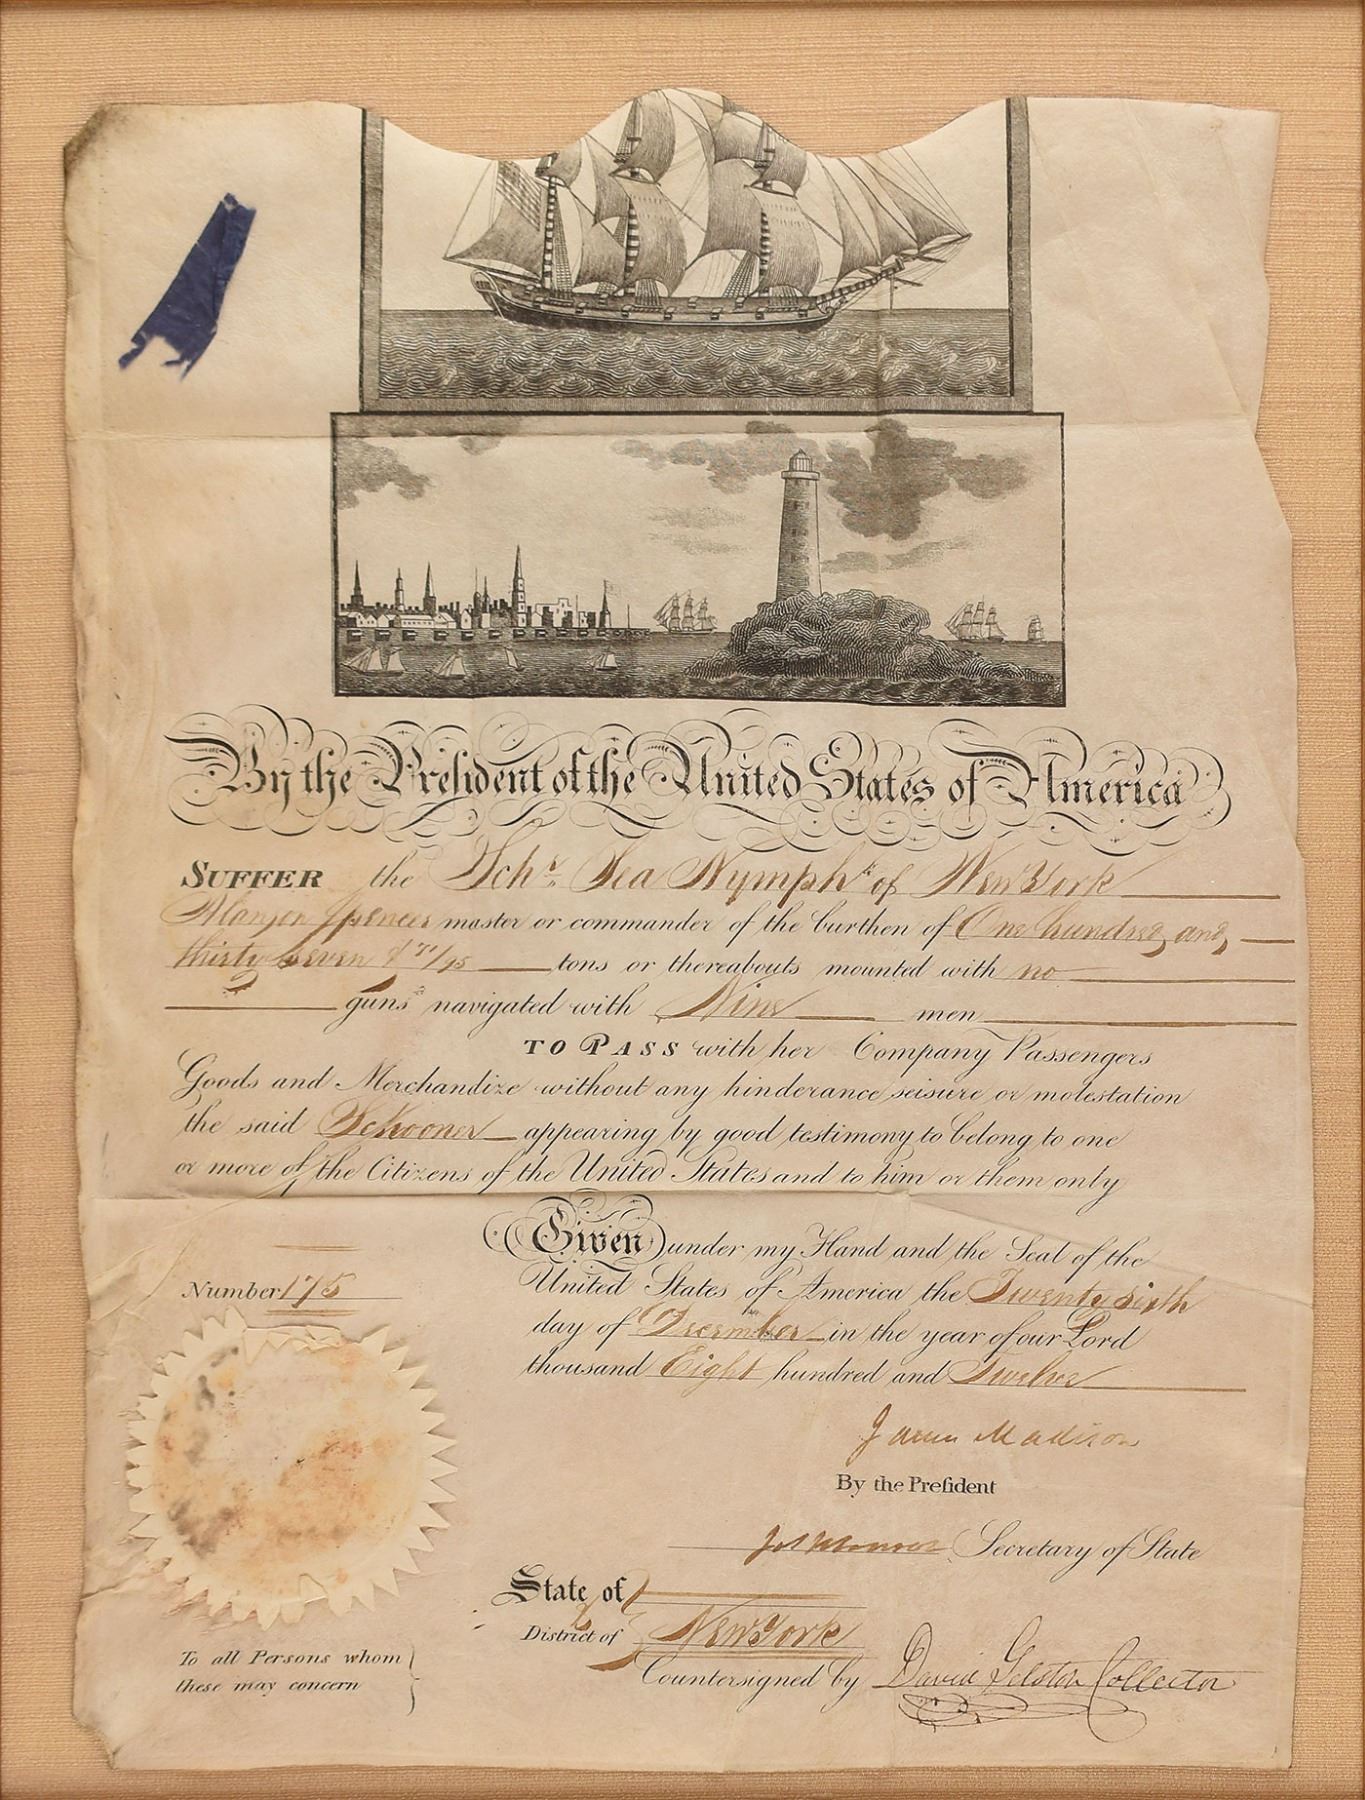 By the President of the United States of America
SUFFER the Schr. Sea Nymph of New York
Alanson Spencer master or commander of the burthen of One hundred and
thirty seven & 71/95 tons or thereabouts mounted with no
guns navigated with Nine men
TO PASS with her Company Passengers
Goods and Merchandize without any hinderance seisure or molestation
the said Schooner appearing by good testimony to belong to one
or more of the Citizens of the United States and to him or them only
Given under my Hand and the Seal of the
United States of America the Twenty sixth
day of December in the year of our Lord
thousand Eight hundred and Twelve
Number 175
James Madison
By the Preſident
Jas Monroe Secretary of State
State of
District of New York
Countersigned by David Gelston Collector
To all Persons whom
these may concern